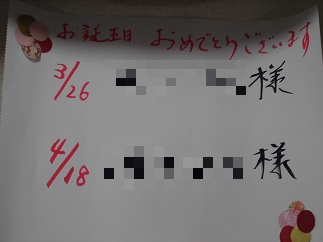 お誕生日 おめでとうございます
3/26 様
4/18 様